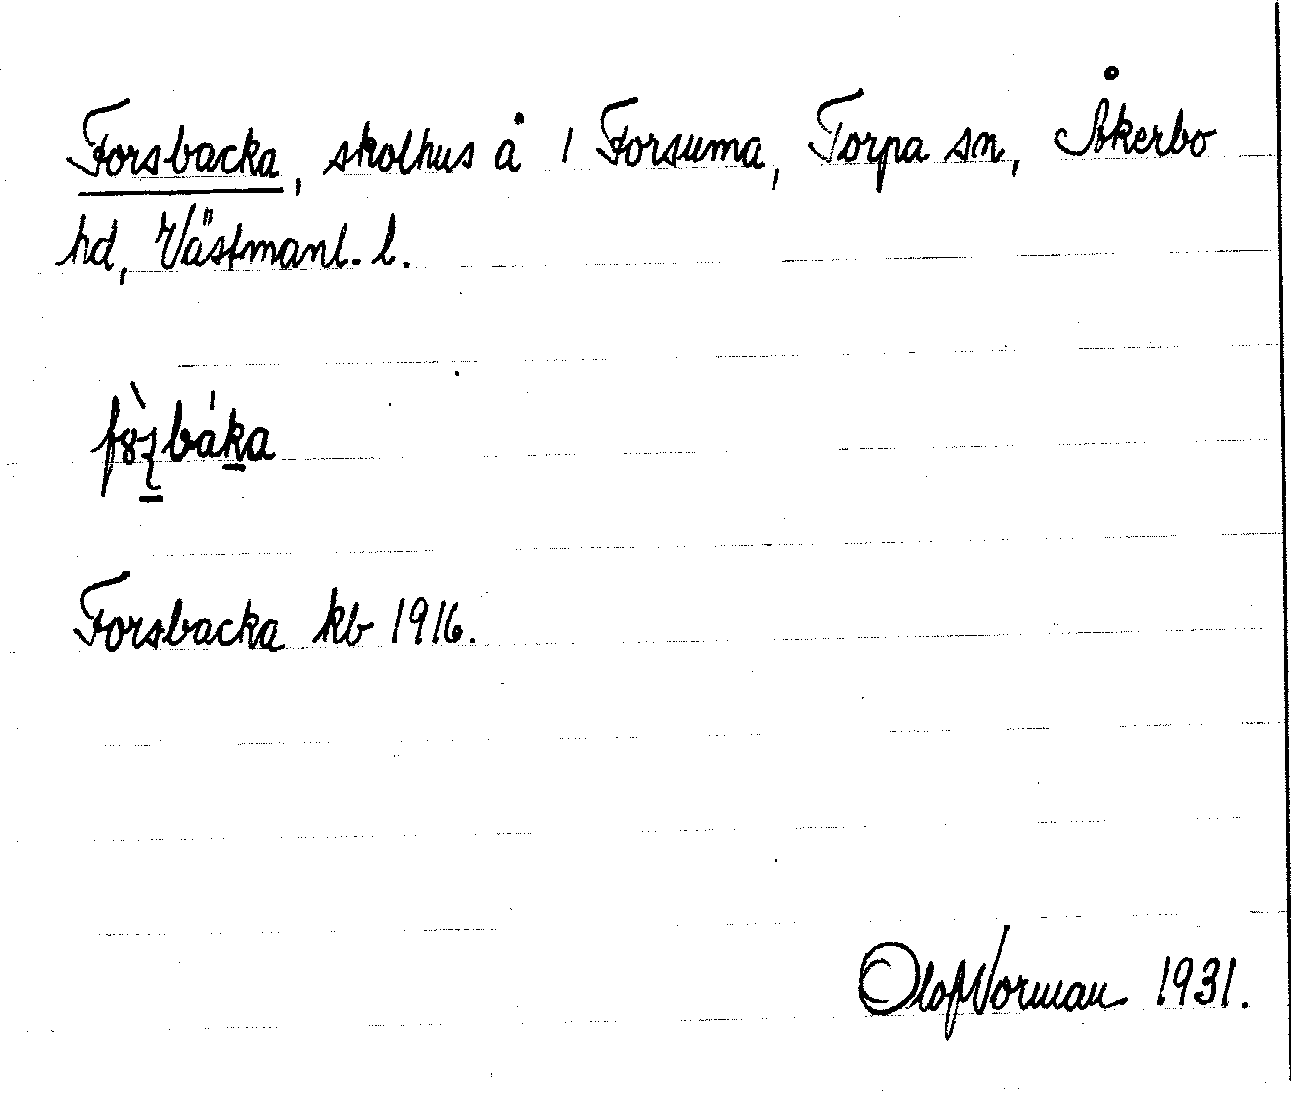 Forsbacka, skolhus å 1 Forsuma, Torpa sn, Åkerbo
hd, Västmanl. l.
Forsbacka kb 1916.
Olof Norman 1931.